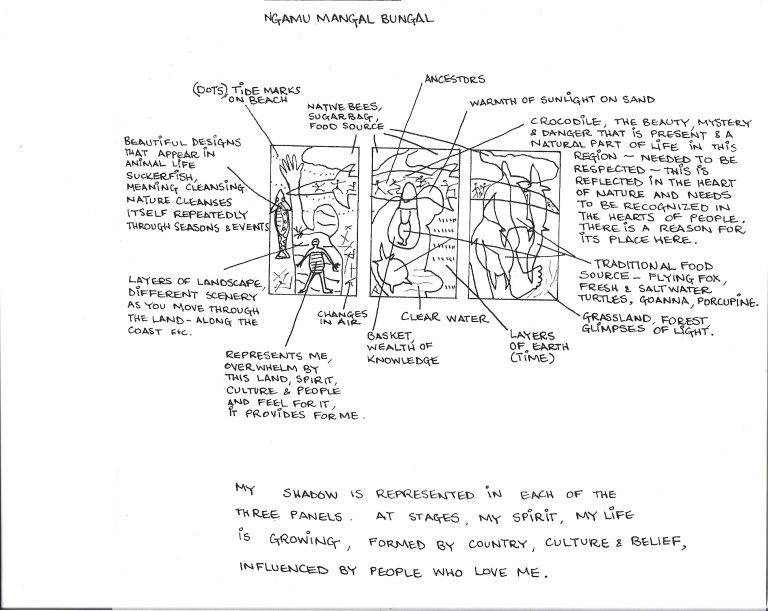 NGAMU MANGAL BUNGAL
ANCESTORS
(DOTS) TIDE MARKS
ON BEACH
NATIVE BEES,
SUGARBAG,
FOOD SOURCE
WARMTH OF SUNLIGHT ON SAND
CROCODILE, THE BEAUTY, MYSTERY
& DANGER THAT IS PRESENT & A
NATURAL PART OF LIFE IN THIS
REGION - NEEDED TO BE
RESPECTED - THIS IS
REFLECTED IN THE HEART
OF NATURE AND NEEDS
TO BE RECOGNIZED IN
THE HEARTS OF PEOPLE.
THERE IS A REASON FOR
ITS PLACE HERE.
BEAUTIFUL DESIGNS
THAT APPEAR IN
ANIMAL LIFE
SUCKERFISH,
MEANING CLEANSING.
NATURE CLEANSES
ITSELF REPEATEDLY
THROUGH SEASONS & EVENTS
TRADITIONAL FOOD
SOURCE - FLYING FOX,
FRESH & SALTWATER
TURTLES, GOANNA, PORCUPINE.
LAYERS OF LANDSCAPE,
DIFFERENT SCENERY
AS YOU MOVE THROUGH
THE LAND - ALONG THE
COAST ETC.
CHANGES
IN AIR
CLEAR WATER
GRASSLAND, FOREST
GLIMPSES OF LIGHT.
BASKET,
WEALTH OF
KNOWLEDGE
LAYERS
OF EARTH
(TIME)
REPRESENTS ME,
OVERWHELM BY
THIS LAND, SPIRIT,
CULTURE & PEOPLE
AND FEEL FOR IT,
IT PROVIDES FOR ME.
MY SHADOW IS REPRESENTED IN EACH OF THE
THREE PANELS. AT STAGES, MY SPIRIT, MY LIFE
IS GROWING, FORMED BY COUNTRY, CULTURE & BELIEF,
INFLUENCED BY PEOPLE WHO LOVE ME.